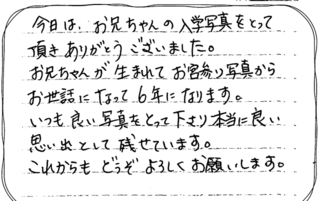 今日は、お兄ちゃんの入学写真をとって
頂きありがとうございました。
お兄ちゃんが生まれてお宮参り写真から
お世話になって6年になります。
いつも良い写真をとって下さり本当に良い
思い出として残せています。
これからもどうぞよろしくお願いします。